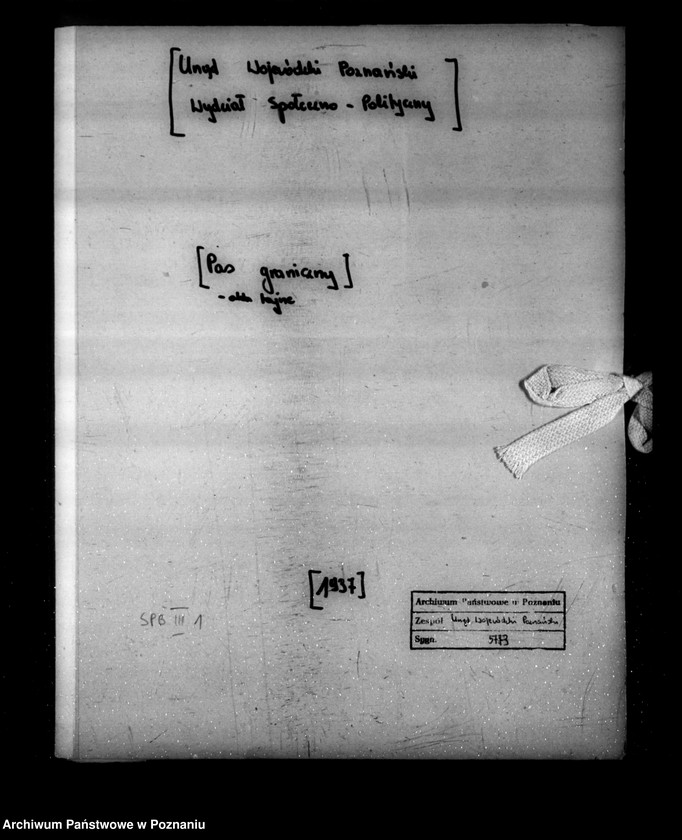 [Urząd Wojewódzki Poznański
Wydział Społeczno - Polityczny]
[Pas graniczny]
- akta tajne
[1937]
SPB III 1
Archiwum Państwowe w Poznaniu
Zespół Urząd Wojewódzki Poznański
Sygn.
Archiwum Państwowe w Poznaniu